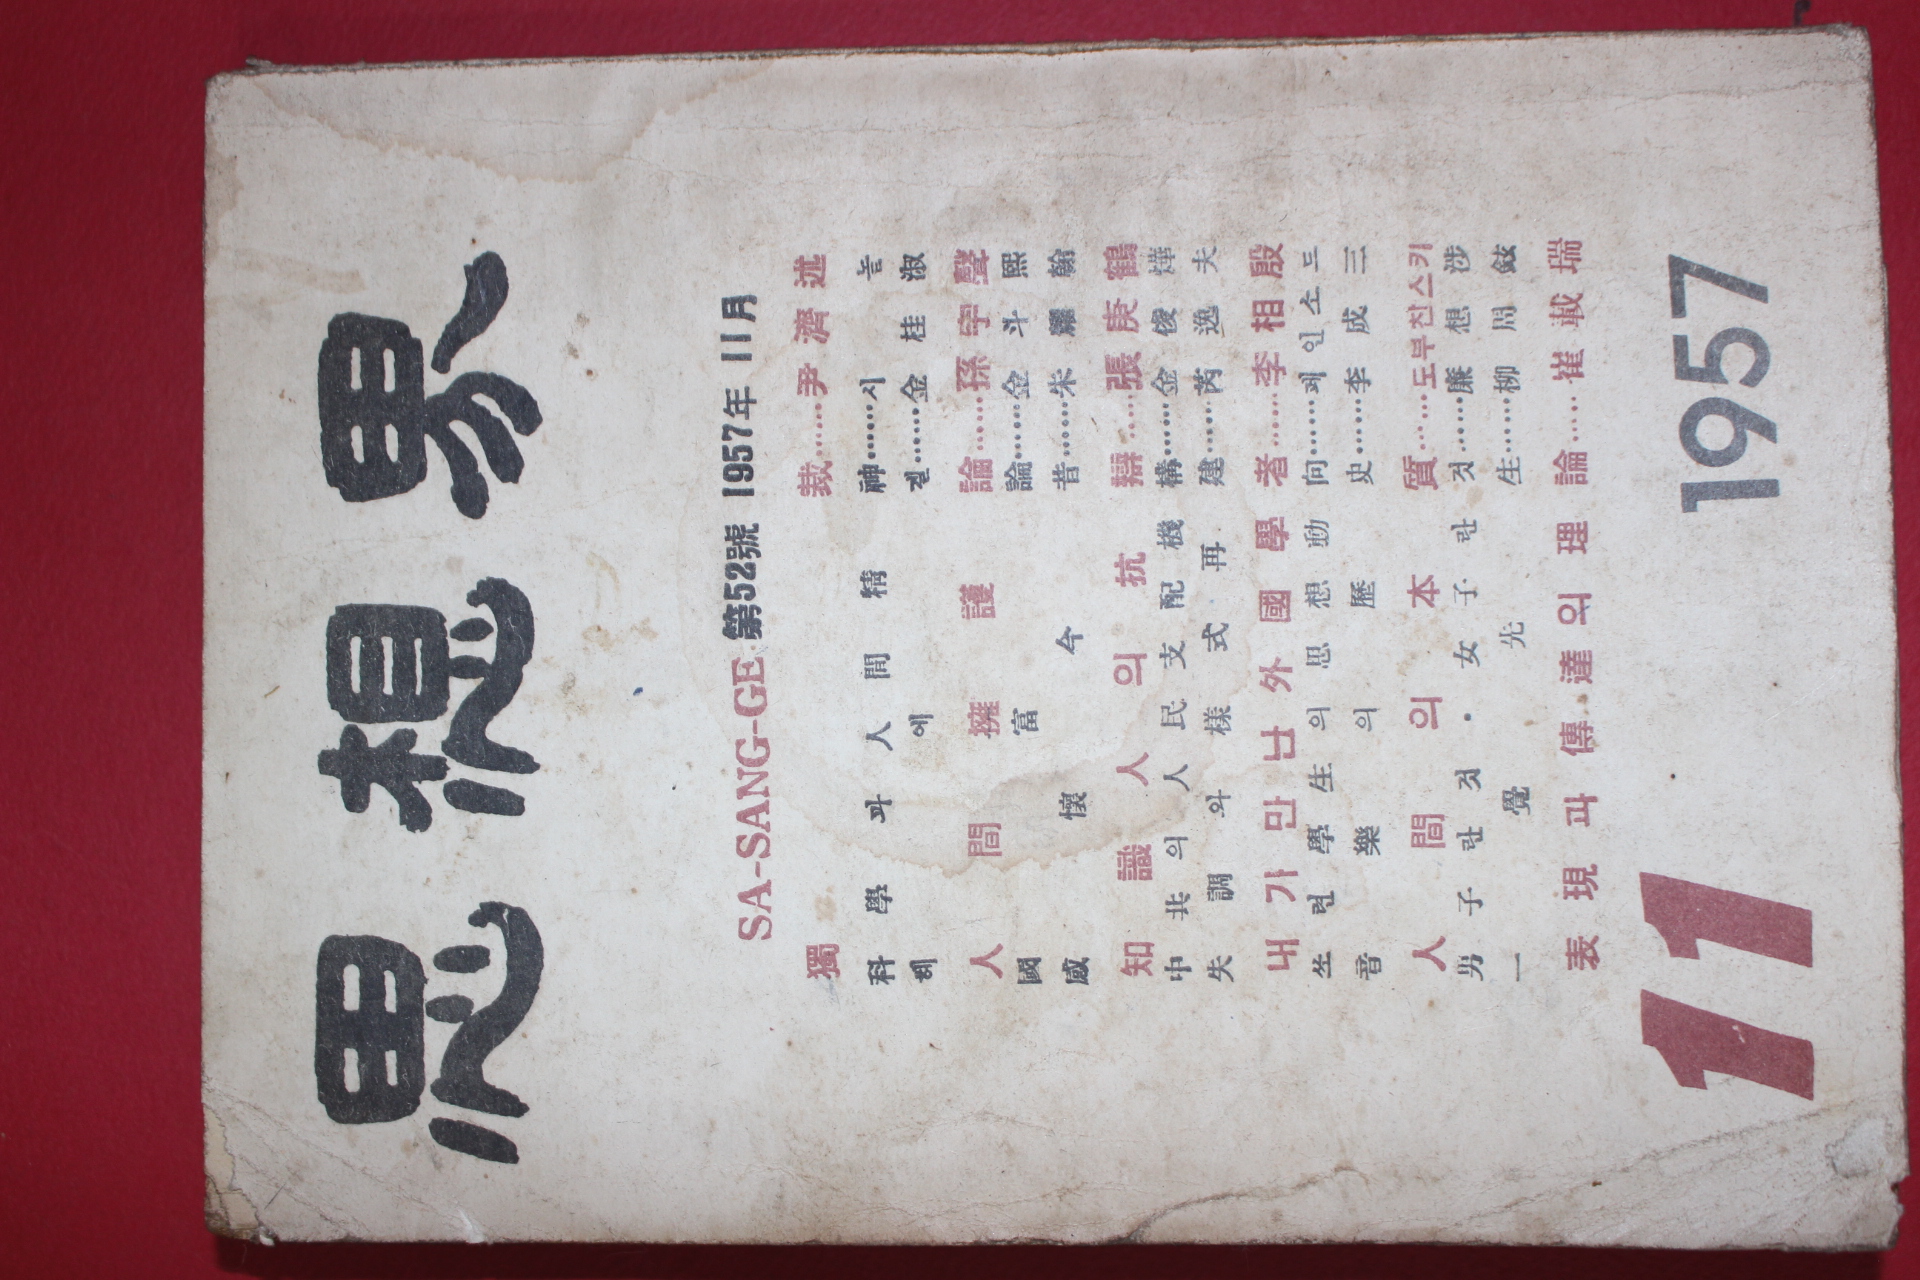 思想界
SA-SANG-GE 第52號 1957年 11月
獨裁……尹濟述
科學과 人間精神……시논
헤겔에……金桂淑
人間擁護論……孫宇聲
國富論……金斗熙
感懷今昔……朱耀翰
知識人의 抗辯……張庚鶴
中共의 人民支配機構……金俊燁
失調와 樣式·再建……芮逸夫
내가 만난 外國學者……李相殷
쏘련 學生의 思想動向……페인소드
音樂의 歷史……李成三
人間의 本質……도부찬스키
男子란 것·女子란 것……廉想涉
一覺先生……柳周鉉
表現과 傳達의 理論……崔載瑞
11 1957